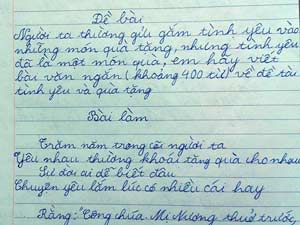 Đề bài
Người ta thường gửi gắm tình yêu vào
những món quà tặng, nhưng tình yêu
đã là một món quà, em hãy viết
bài văn ngắn (khoảng 400 từ) về đề tài
tình yêu và quà tặng
Bài làm
Trăm năm trong cõi người ta
Yêu nhau thường khoái tặng quà cho nhau
Sự đời ai dễ biết đâu
Chuyện yêu lắm lúc có nhiều cái hay
Rằng: "Công chúa Mị Nương thuở trước,